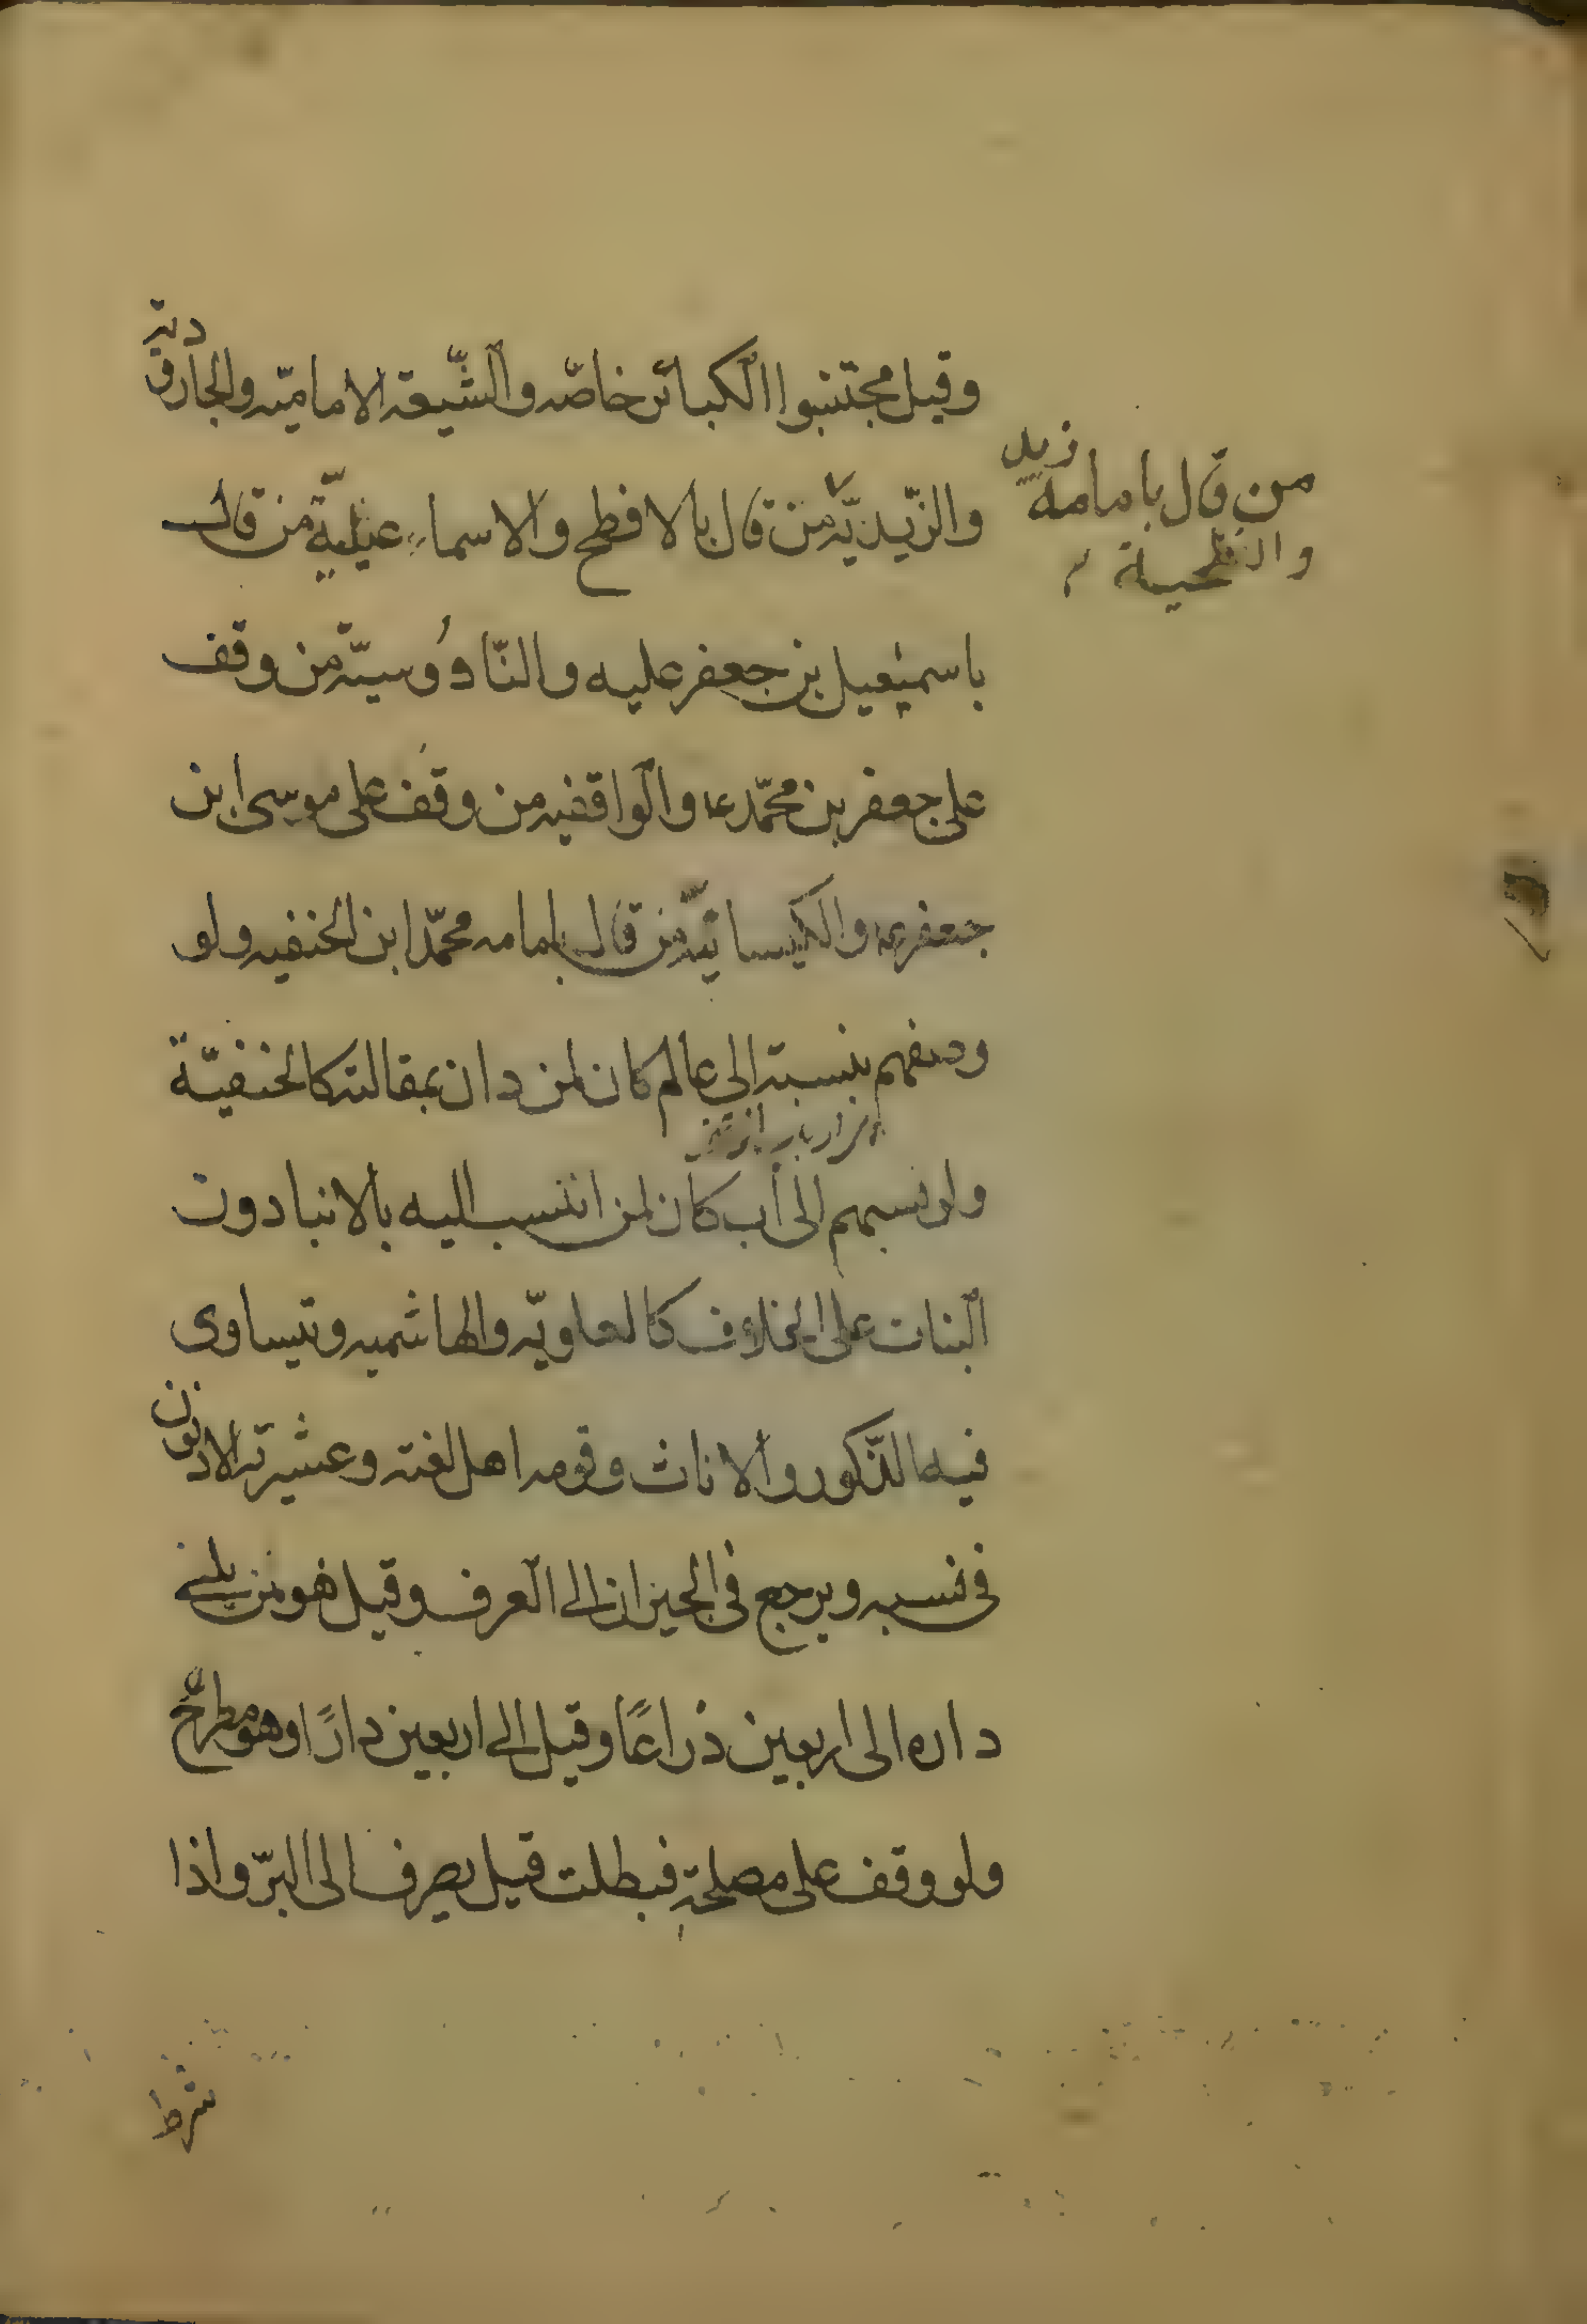 وقيل مجتنبوا الكبائر خاصّه والشّيعة الاماميّه والجارودية
والزّيديّة من قال بالافطح والاسماعيليّة من قال
من قال بامامه زيد
والفطحية
باسمعيل بن جعفر عليه والنّاووسيّة من وقف
على جعفر بن محمّد ع والواقفيه من وقف على موسى ابن
جعفر ع والكيسانيّة من قال بامامه محمّد ابن الحنفيه ولو
وصفهم بنسبته الى عالم كان لمن دان بمقالته كالحنفيّة
ولو نسبهم الى أب كان لمن انتسب اليه بالابنا دون
البنات على الخلاف كالعلويّه والهاشميه وتيساوى
فيه الذّكور والاناث وقومه اهل لغته وعشيرته الادنون
فى نسبه ويرجع فى الجيران الى العرف وقيل هو من يلى
داره الى اربعين ذراعًا وقيل الى اربعين دارًا وهو مطرح
ولو وقف على مصلحةٍ فبطلت قيل يصرف الى البرّ واذا
شرط